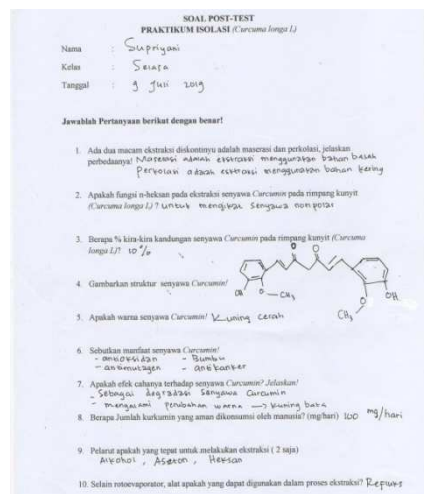 SOAL POST-TEST
PRAKTIKUM ISOLASI (Curcuma longa L)
Nama : Supriyani
Kelas : Selasa
Tanggal : 9 Juli 2019
Jawablah Pertanyaan berikut dengan benar!
1. Ada dua macam ekstraksi diskontinyu adalah maserasi dan perkolasi, jelaskan
perbedaanya! Maserasi adalah ekstraksi menggunakan bahan basah
Perkolasi adalah ekstraksi menggunakan bahan kering
2. Apakah fungsi n-heksan pada ekstraksi senyawa Curcumin pada rimpang kunyit
(Curcuma longa L) ? untuk mengikat senyawa nonpolar
3. Berapa % kira-kira kandungan senyawa Curcumin pada rimpang kunyit (Curcuma
longa L)? 10 %
4. Gambarkan struktur senyawa Curcumin!
O O
OH O — CH3
CH3 O OH
5. Apakah warna senyawa Curcumin! Kuning cerah
6. Sebutkan manfaat senyawa Curcumin!
- antioksidan - Bumbu
- antimutagen - antikanker
7. Apakah efek cahanya terhadap senyawa Curcumin? Jelaskan!
- Sebagai degradasi senyawa Curcumin
- mengalami perubahan warna → kuning
8. Berapa Jumlah kurkumin yang aman dikonsumsi oleh manusia? (mg/hari) 100 mg/hari
9. Pelarut apakah yang tepat untuk melakukan ekstraksi ( 2 saja)
Alkohol , Aseton , Heksan
10. Selain rotoevaporator, alat apakah yang dapat digunakan dalam proses ekstraksi? Refluks